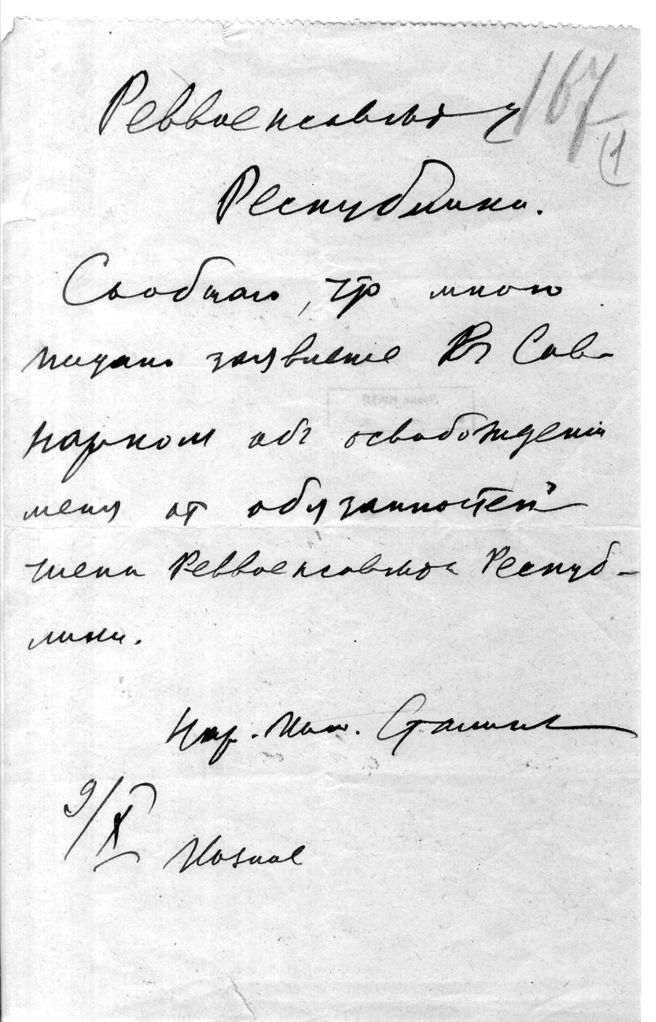 Реввоенсовету
167
(1
Республики.
Сообщаю, что мною
подано заявление в Сов-
нарком об освобождении
меня от обязанностей
члена Реввоенсовета Респуб-
лики.
Нар. ком. Сталин
9/X